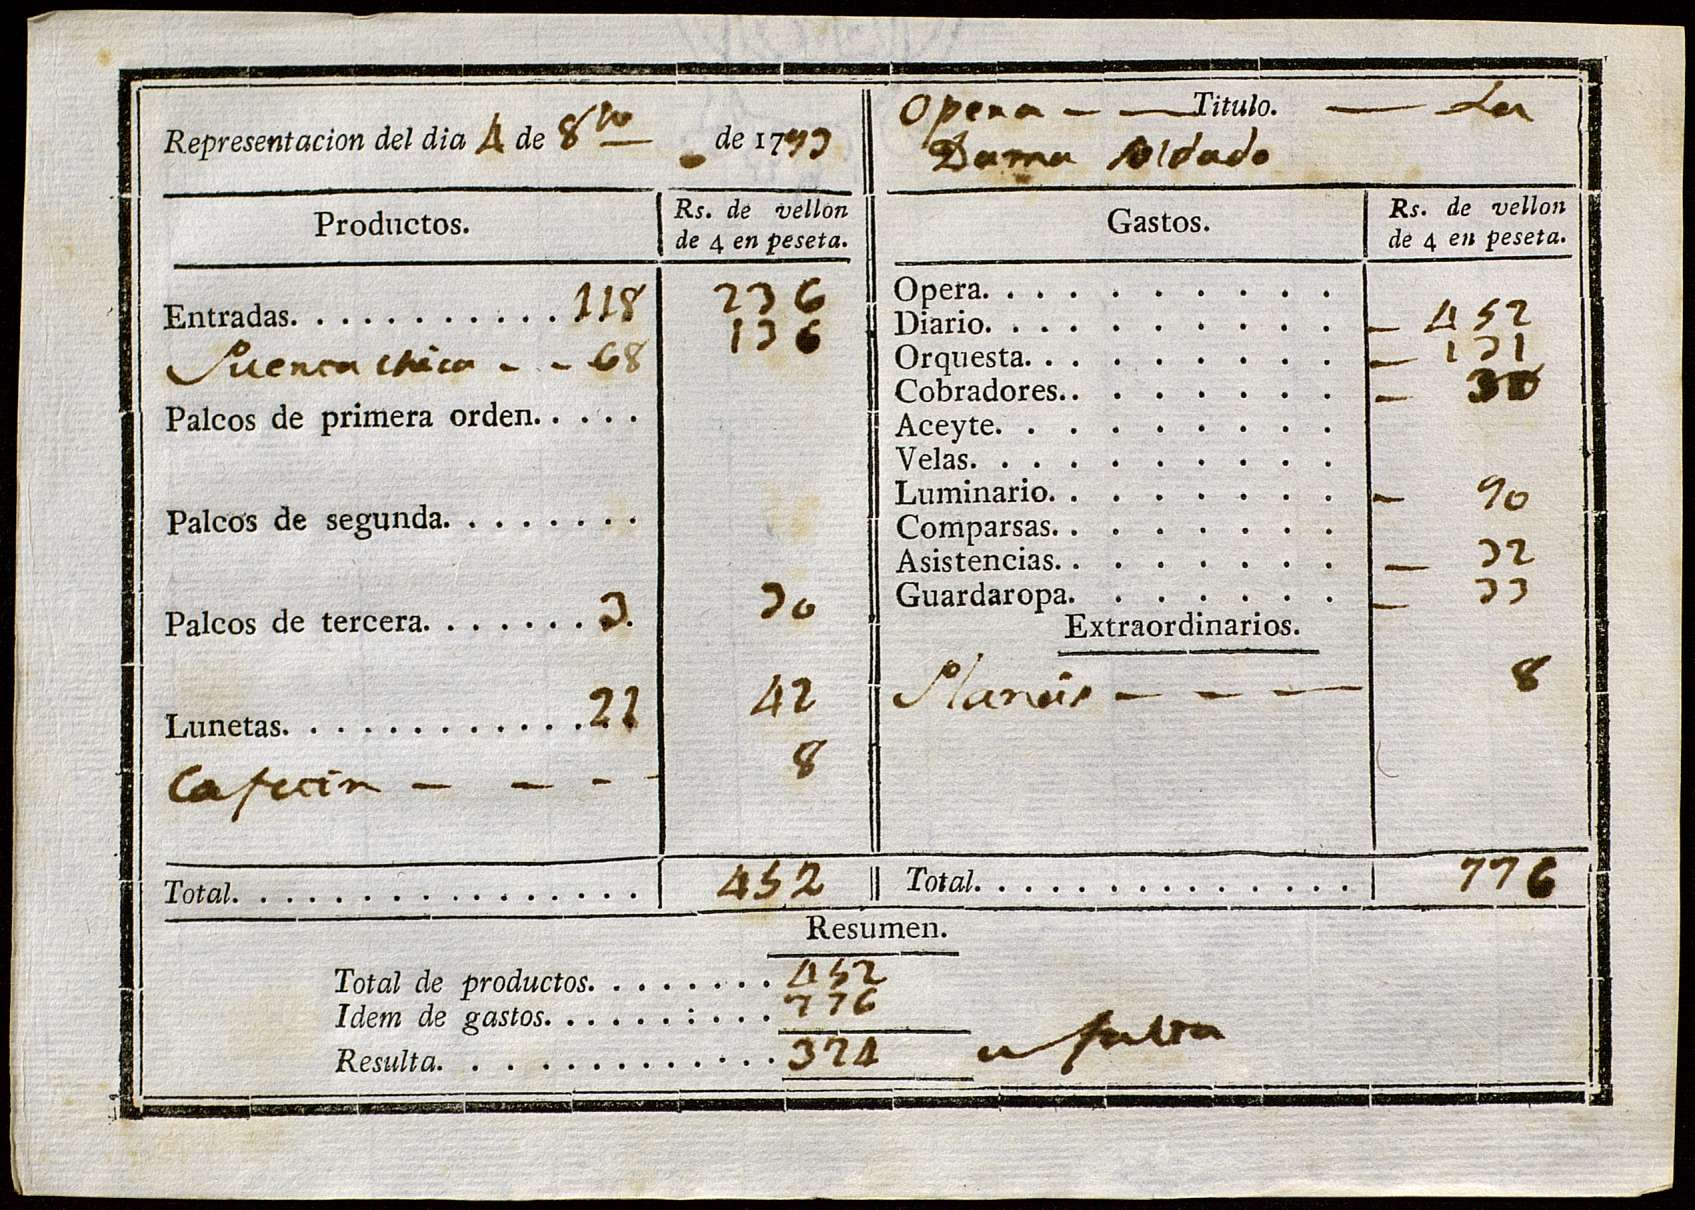 Representacion del dia 4 de 8bre de 1793
Opera — — Titulo. — La
Dama soldado
Productos.
Rs. de vellon
de 4 en peseta.
Gastos.
Rs. de vellon
de 4 en peseta.
Entradas. . . . . . . . . . . . 118 236
Puerta chica - - 68 136
Palcos de primera orden. . . . .
Palcos de segunda. . . . . . . .
Palcos de tercera. . . . . . . . 3. 30
Lunetas. . . . . . . . . . . . . . 21 42
Cafetin — — - - 8
Total. . . . . . . . . . . . . . . . . 452
Opera. . . . . . . . . .
Diario. . . . . . . . . . — 452
Orquesta. . . . . . . . . — 131
Cobradores. . . . . . . . — 30
Aceyte. . . . . . . . . .
Velas. . . . . . . . . . .
Luminario. . . . . . . . — 90
Comparsas. . . . . . . .
Asistencias. . . . . . . . — 32
Guardaropa. . . . . . . . — 33
Extraordinarios.
— — — 8
Total. . . . . . . . . . . . . . . . 776
Resumen.
Total de productos. . . . . . . . 452
Idem de gastos. . . . . . : . . . 776
Resulta. . . . . . . . . . . . . 324 falta